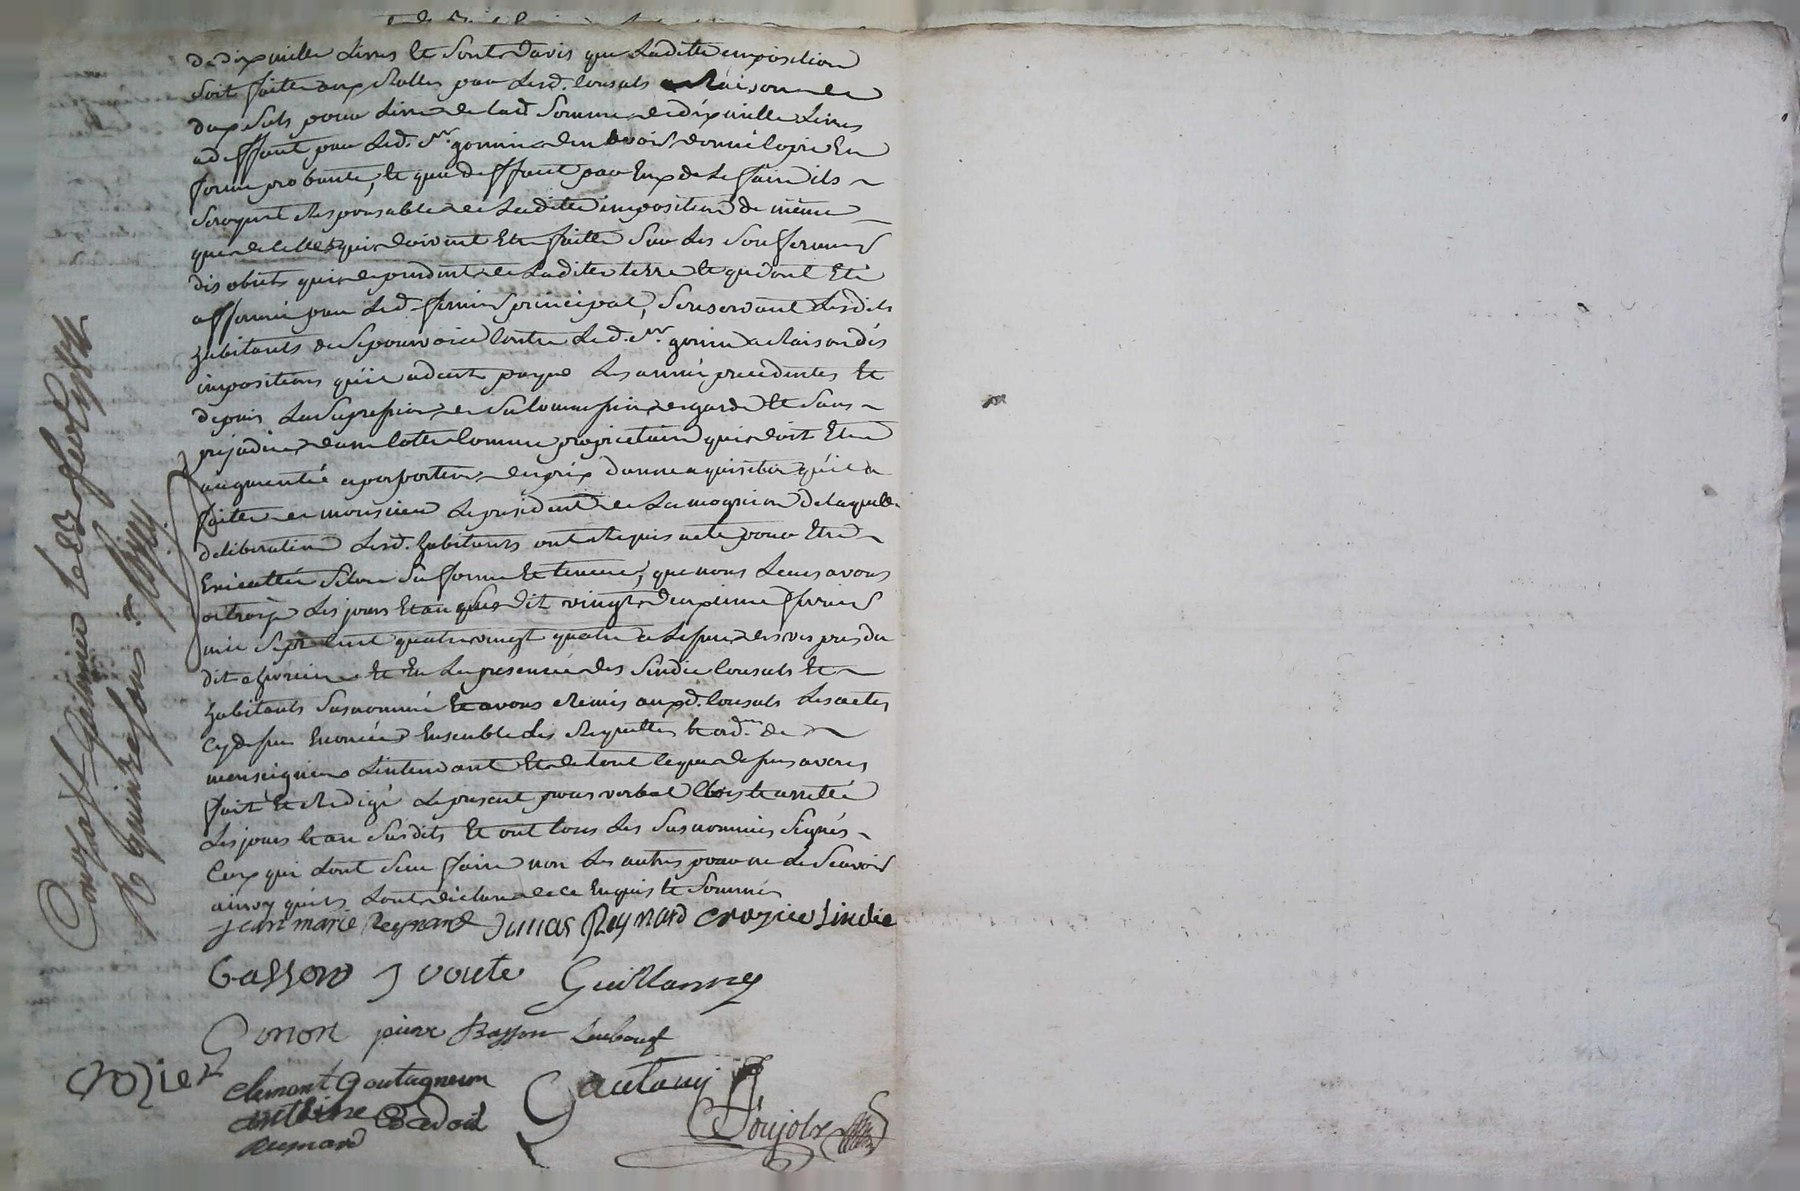 de dix mille Livres Et Sont davis que Laditte imposition
Soit faitte aux Rolles par Lesd. Consuls a Raison de
deux sols pour Livre de lad Somme de dix mille Livres
a deffaut par Led. Sr. gonin den avoir donné Copie En
forme probante, Et que deffaut par Eux de Le faire ils
Seroyent Responsables de Laditte imposition de même
que de celles qui doivent Etre faitte Sur Les Sousfermiers
des obiets qui dependent de Laditte terre Et qui ont Eté
affermé par Led. fermier principal, Se reservant Lesdits
habitants de Se pourvoir Contre Led. Sr. gonin a Raison des
impositions qu'il a deut payer Les année precedentes Et
depuis La Supression de Sa Commission de garde Et Sans
prejudice de sa Cotte Comme propriétaire qui doit Etre
augmentée a porportion du prix dune aquisition qu'il a
faitte de monsieur Le president de Lamoignon De laquelle
deliberation Lesd. habitants ont Requis acte pour Etre
Executtée Selon Sa forme Et teneur, que nous Leur avons
octroyé Les jours Et an que dit vingt deuxieme fevrier
mil Sept Cent quatre vingt quatre
dit Et En La presence des Sindic Consuls Et
habitants Susnommé Et avons Remis auxd. Consuls Les actes
Cy dessus Enoncés Ensemble Les Requettes Et ord.ces de
monseigneur L'intendant Et de tout ce que dessus avons
fait Et Redigé Le present procès verbal Clos Et arretté
Les jours Et an Susdits Et ont tous Les Susnommés Signés
Ceux qui L'ont Sceu faire non Les autres pour ne Le Scavoir
ainsy qu'ils L'ont declaré de ce Enquis Et Sommés
jean marie Reynard Dumas Reynard Crozier Sindic
Basson J voute Guillaumy
Gonon pierre Basson Leubouf
Crozier
Clemont Goutagneux Gautany
antoine Badoil Poujolx
Reynard